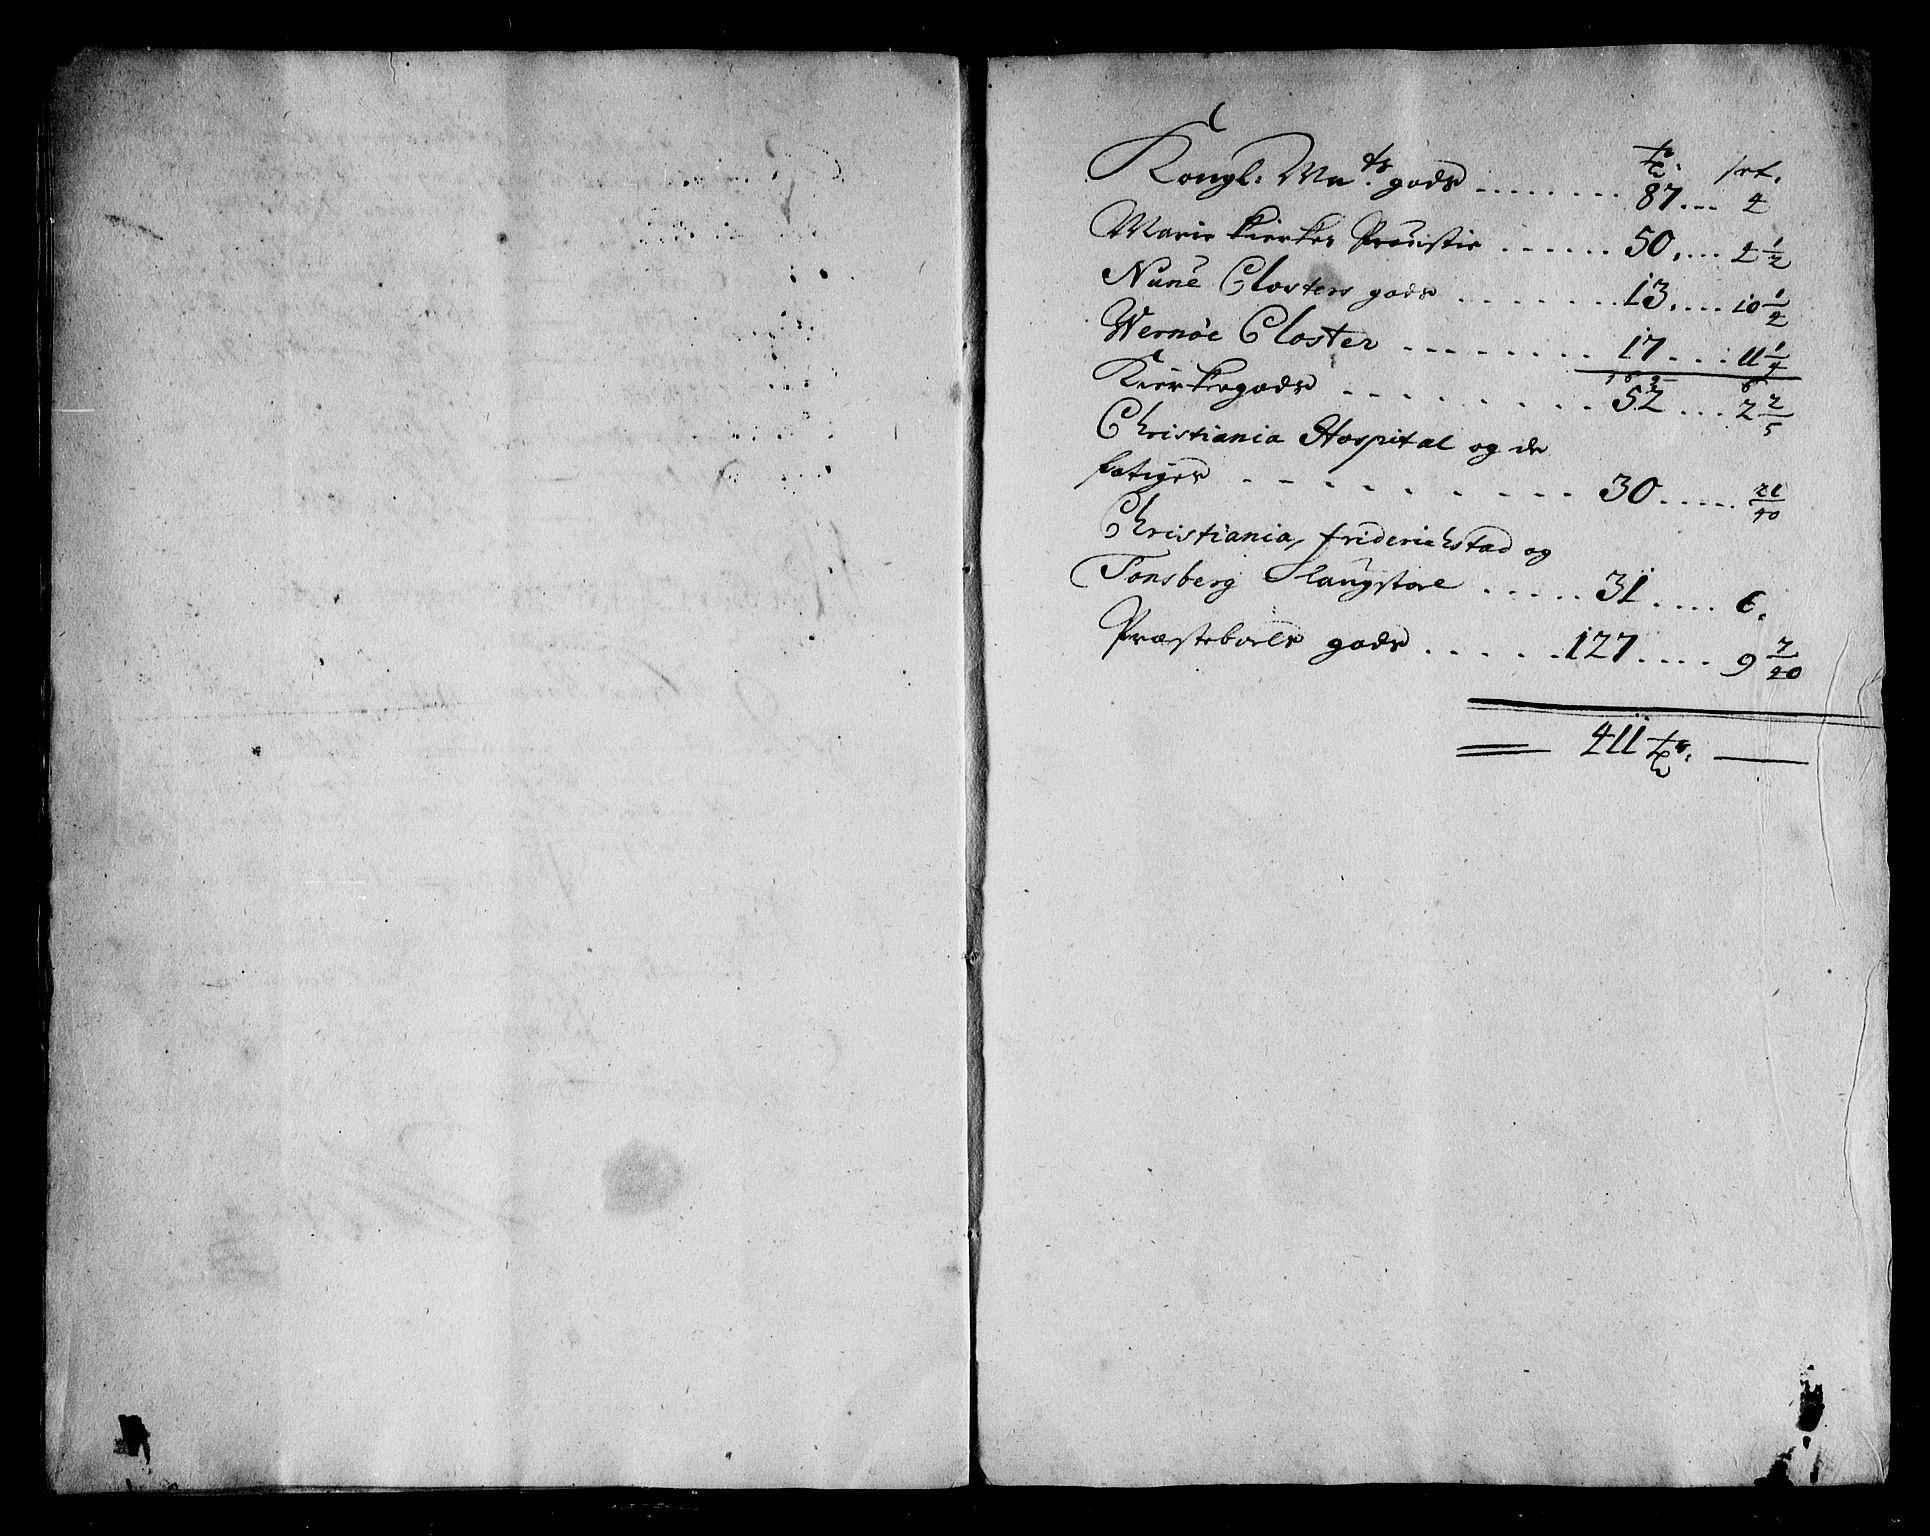 Kongl: Ma.ts gods ........ 87 ... 4
Marie Kierkes Proustie ...... 50 .... 2 1/2
Nune Closters gods ....... 13 .... 10 1/2
Wernöe Closter ........ 17 ... 11 1/4
Kierkegods ......... 52 ... 2 2/5
Christiania Hospital og de
fatiges .......... 30 ..... 21/40
Christiania, friderichstad og
Tonsberg Laugstole ..... 31 .... 6.
Præsteboels gods ..... 127 .... 9 7/20
411